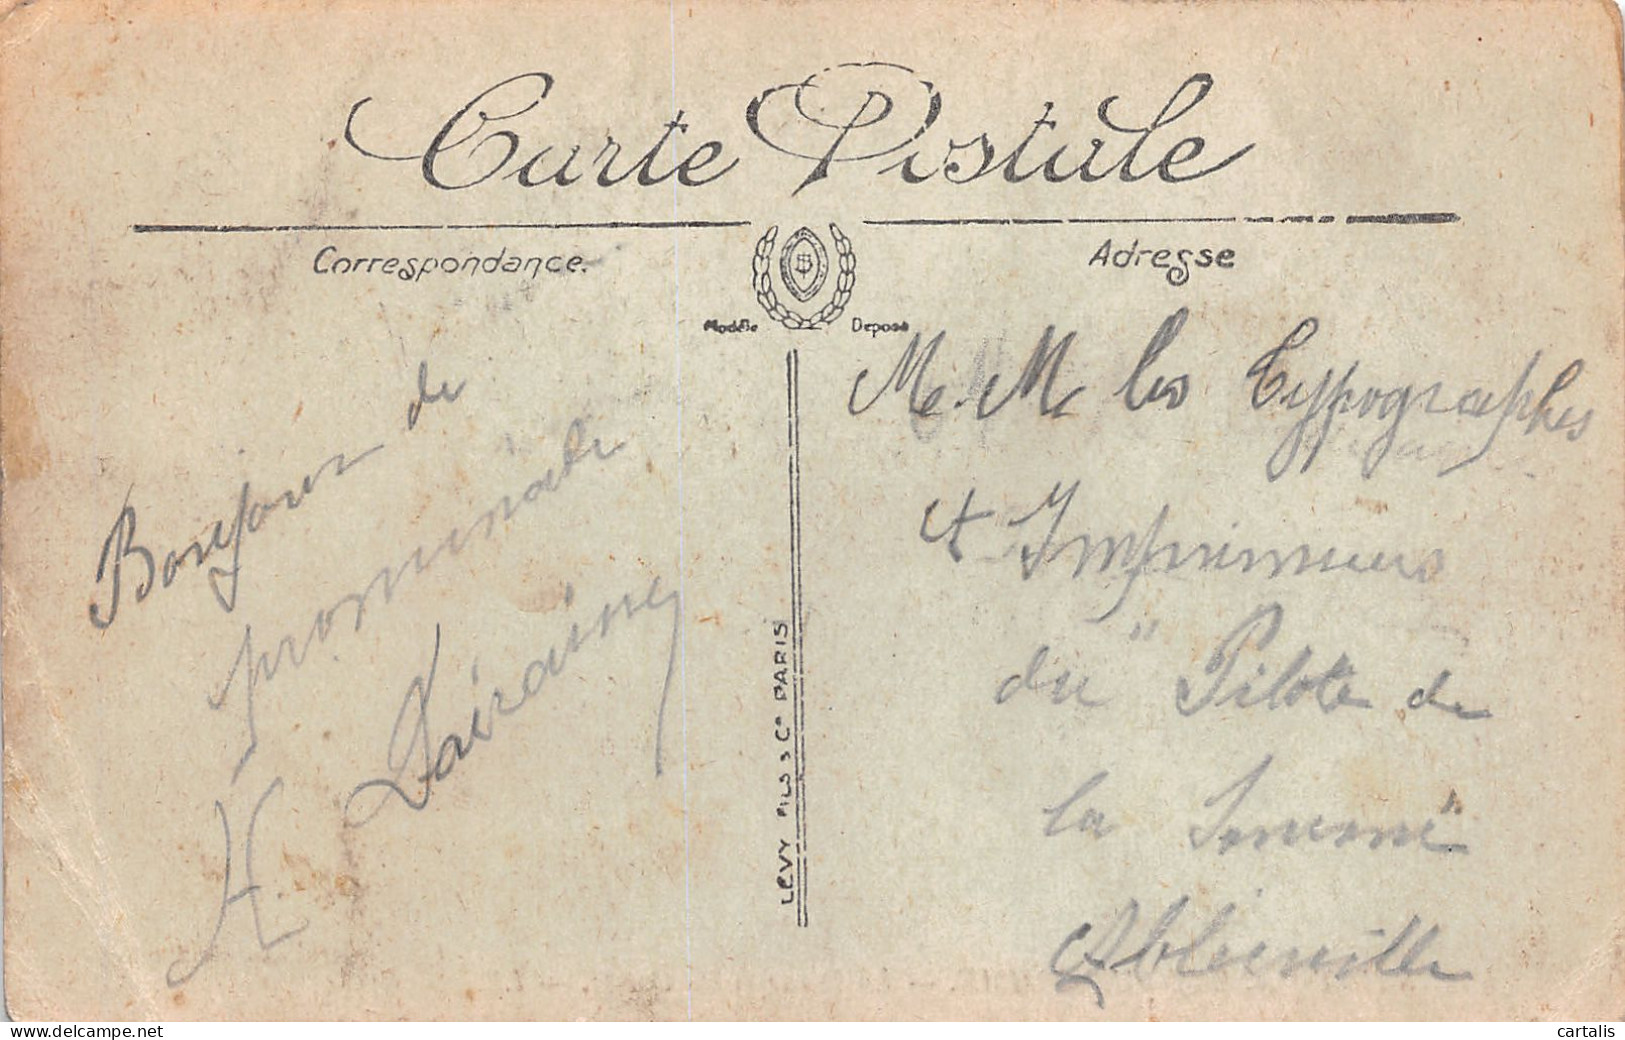 Carte Postale
Correspondance.
Adresse
Modèle Déposé
Bonjour de
promenade
H. Dairaine
LEVY FILS & Cie PARIS
M. M. les Typographes
et Imprimeurs
du "Pilote de
la Somme"
Abbeville
delcampe.net
cartalis